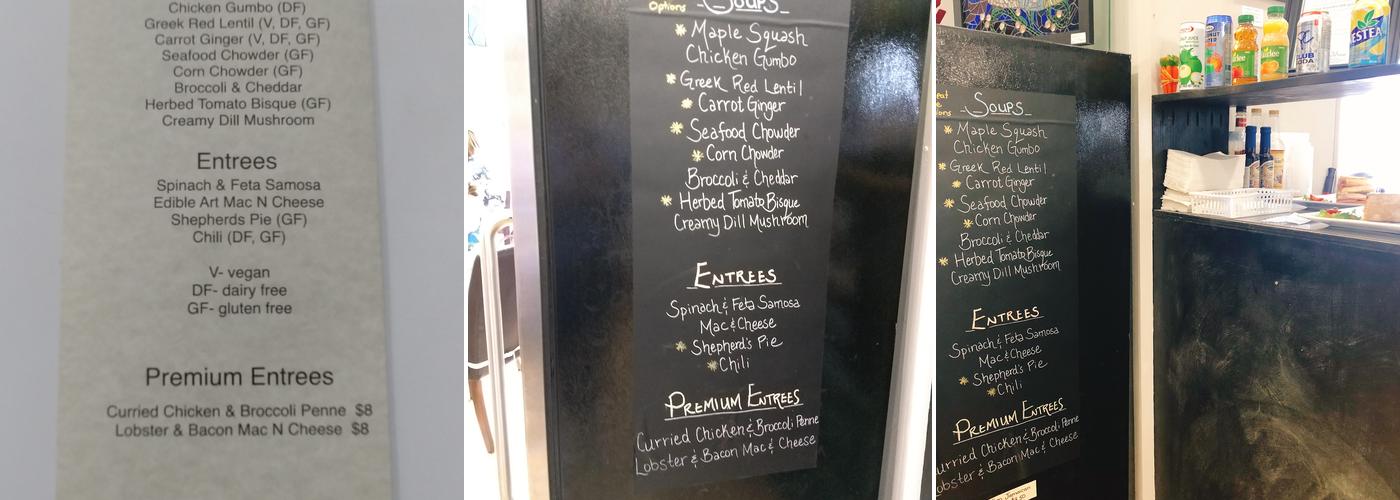 Chicken Gumbo (DF)
Greek Red Lentil (V, DF, GF)
Carrot Ginger (V, DF, GF)
Seafood Chowder (GF)
Corn Chowder (GF)
Broccoli & Cheddar
Herbed Tomato Bisque (GF)
Creamy Dill Mushroom
Entrees
Spinach & Feta Samosa
Edible Art Mac N Cheese
Shepherds Pie (GF)
Chili (DF, GF)
V- vegan
DF- dairy free
GF- gluten free
Premium Entrees
Curried Chicken & Broccoli Penne $8
Lobster & Bacon Mac N Cheese $8
Options
Soups
Maple Squash
Chicken Gumbo
Greek Red Lentil
Carrot Ginger
Seafood Chowder
Corn Chowder
Broccoli & Cheddar
Herbed Tomato Bisque
Creamy Dill Mushroom
Entrees
Spinach & Feta Samosa
Mac & Cheese
Shepherd's Pie
Chili
Premium Entrees
Curried Chicken & Broccoli Penne
Lobster & Bacon Mac & Cheese
Soups
Maple Squash
Chicken Gumbo
Greek Red Lentil
Carrot Ginger
Seafood Chowder
Corn Chowder
Broccoli & Cheddar
Herbed Tomato Bisque
Creamy Dill Mushroom
Entrees
Spinach & Feta Samosa
Mac & Cheese
Shepherd's Pie
Chili
Premium Entrees
urried Chicken & Broccoli Penne
Lobster & Bacon Mac & Cheese
ESTEA